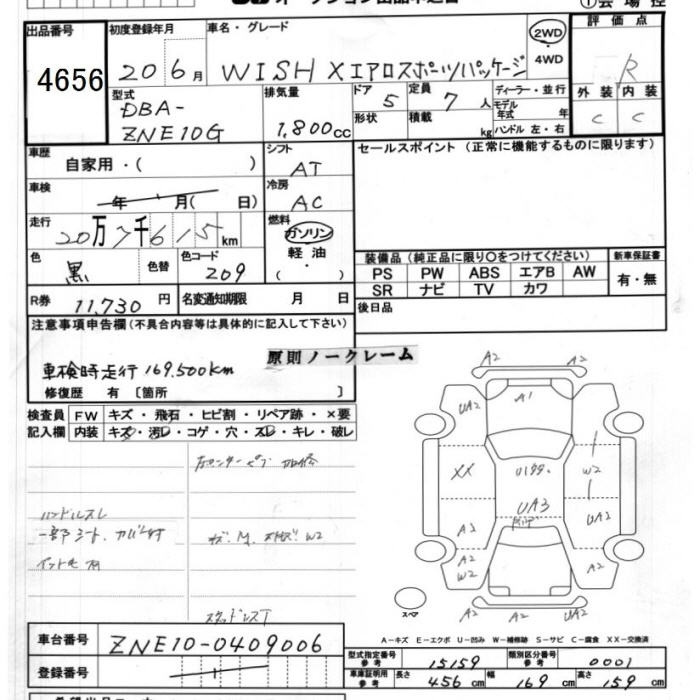 出品番号 初度登録年月 車名・グレード 評価点
2WD
4656 20 6月 WISH XエアロスポーツパッケージR
4WD
型式 排気量 ドア 定員 ディーラー・並行 外装 内装
DBA- 5 7人 モデル年式 年 C C
ZNE10G 1,800cc 形状 積載 kg ハンドル 左・右
車歴 シフト セールスポイント (正常に機能するものに限ります)
自家用・( ) AT
車検 冷房
年 月( 日) AC
走行 燃料
20万7千615km ガソリン
色 色替 色コード 軽油 装備品 (純正品に限り○をつけてください) 新車保証書
黒 209 ・( ) PS PW ABS エアB AW 有・無
SR ナビ TV カワ
R券 11,730円 名変通知期限 月 日 後日品
注意事項申告欄(不具合内容等は具体的に記入して下さい)
原則ノークレーム
車検時走行169,500km
修復歴 有 〔箇所 〕
検査員 FW キズ・飛石・ヒビ割・リペア跡・×要
記入欄 内装 キズ・汚レ・コゲ・穴・スレ・キレ・破レ
ハンドルスレ
A2 A2
UA2 A1 A2
XX W2
UA3 UA2
A2 A2
W2
A2 UA2 A2
スペア
スタッドレスT
A-キズ E-エクボ U-凹み W-補修跡 S-サビ C-腐食 XX-交換済
車台番号 ZNE10-0409006
登録番号
型式指定番号 参考 15159 類別区分番号 参考 0001
車庫証明用 参考 長さ 456cm 幅 169cm 高さ 159cm